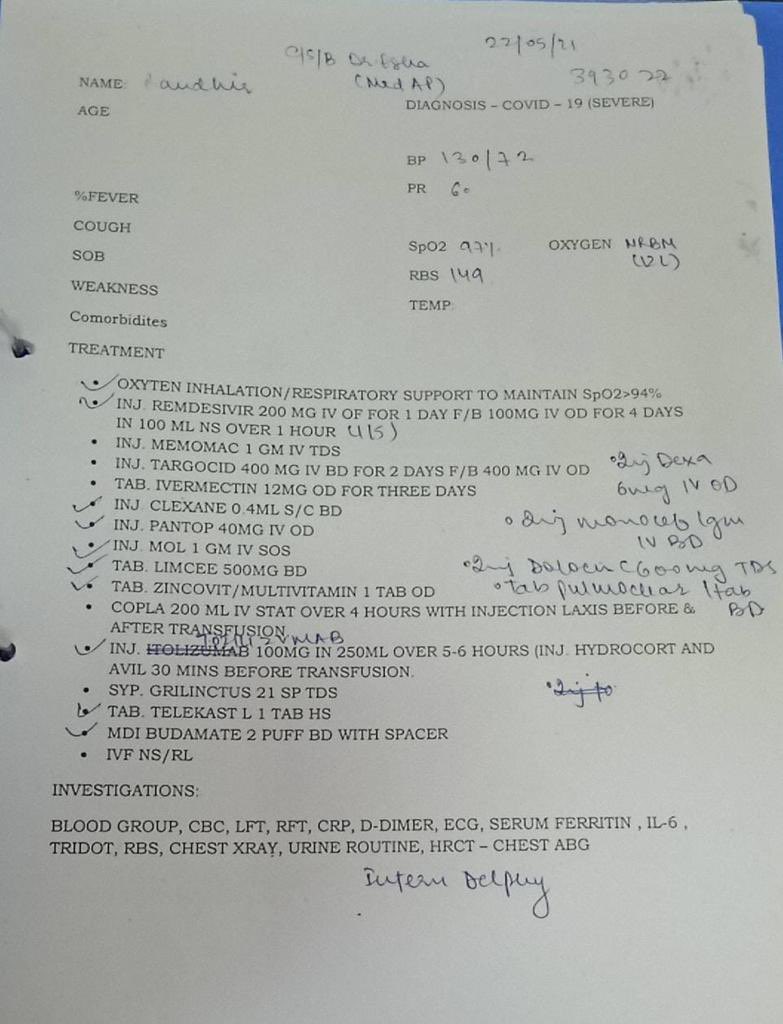 C/S/B Dr Esha 22/05/21
(Med AP) 393022
NAME:
AGE DIAGNOSIS – COVID – 19 (SEVERE)
BP 130/72
%FEVER PR 60
COUGH
SOB SpO2 97% OXYGEN NRBM
(12L)
WEAKNESS RBS 149
Comorbidites TEMP:
TREATMENT
• OXYTEN INHALATION/RESPIRATORY SUPPORT TO MAINTAIN SpO2>94%
• INJ. REMDESIVIR 200 MG IV OF FOR 1 DAY F/B 100MG IV OD FOR 4 DAYS
IN 100 ML NS OVER 1 HOUR (4/5)
• INJ. MEMOMAC 1 GM IV TDS
• INJ. TARGOCID 400 MG IV BD FOR 2 DAYS F/B 400 MG IV OD
• Inj Dexa
6mg IV OD
• TAB. IVERMECTIN 12MG OD FOR THREE DAYS
• INJ. CLEXANE 0.4ML S/C BD
• Inj monocef 1gm
IV BD
• INJ. PANTOP 40MG IV OD
• INJ. MOL 1 GM IV SOS
• Inj Dalacin C 600mg TDS
• TAB. LIMCEE 500MG BD
• tab pulmoclear 1tab
BD
• TAB. ZINCOVIT/MULTIVITAMIN 1 TAB OD
• COPLA 200 ML IV STAT OVER 4 HOURS WITH INJECTION LAXIS BEFORE &
AFTER TRANSFUSION
• INJ. ITOLIZUMAB 100MG IN 250ML OVER 5-6 HOURS (INJ. HYDROCORT AND
AVIL 30 MINS BEFORE TRANSFUSION.
• SYP. GRILINCTUS 21 SP TDS
• TAB. TELEKAST L 1 TAB HS
• MDI BUDAMATE 2 PUFF BD WITH SPACER
• IVF NS/RL
INVESTIGATIONS:
BLOOD GROUP, CBC, LFT, RFT, CRP, D-DIMER, ECG, SERUM FERRITIN , IL-6 ,
TRIDOT, RBS, CHEST XRAY, URINE ROUTINE, HRCT – CHEST ABG
Intern Delphy